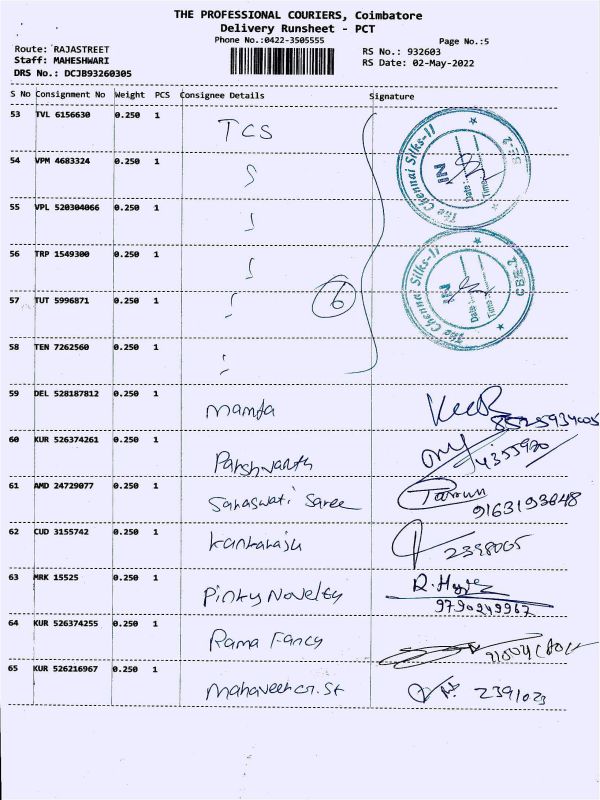 THE PROFESSIONAL COURIERS, Coimbatore
Delivery Runsheet - PCT
Phone No.:0422-3505555
Page No.:5
Route: RAJASTREET
RS No.: 932603
Staff: MAHESHWARI
RS Date: 02-May-2022
DRS No.: DCJB93260305
S No Consignment No Weight PCS Consignee Details Signature
53 TVL 6156630 0.250 1 TCS
The Chennai Silks-II CBE-2
IN
Date:
Time:
54 VPM 4683324 0.250 1
55 VPL 520304066 0.250 1
56 TRP 1549300 0.250 1
The Chennai Silks-II CBE-2
IN
Date:
Time:
57 TUT 5996871 0.250 1
6
58 TEN 7262560 0.250 1
59 DEL 528187812 0.250 1 Mamta
60 KUR 526374261 0.250 1 Parshwanth
4355920
61 AMD 24729077 0.250 1 Saraswati Saree
9163193648
62 CUD 3155742 0.250 1 Kankaraju
2398065
63 MRK 15525 0.250 1 Pinky Novelty
9790249967
64 KUR 526374255 0.250 1 Rama Fancy
65 KUR 526216967 0.250 1 Mahaveer st
2391023